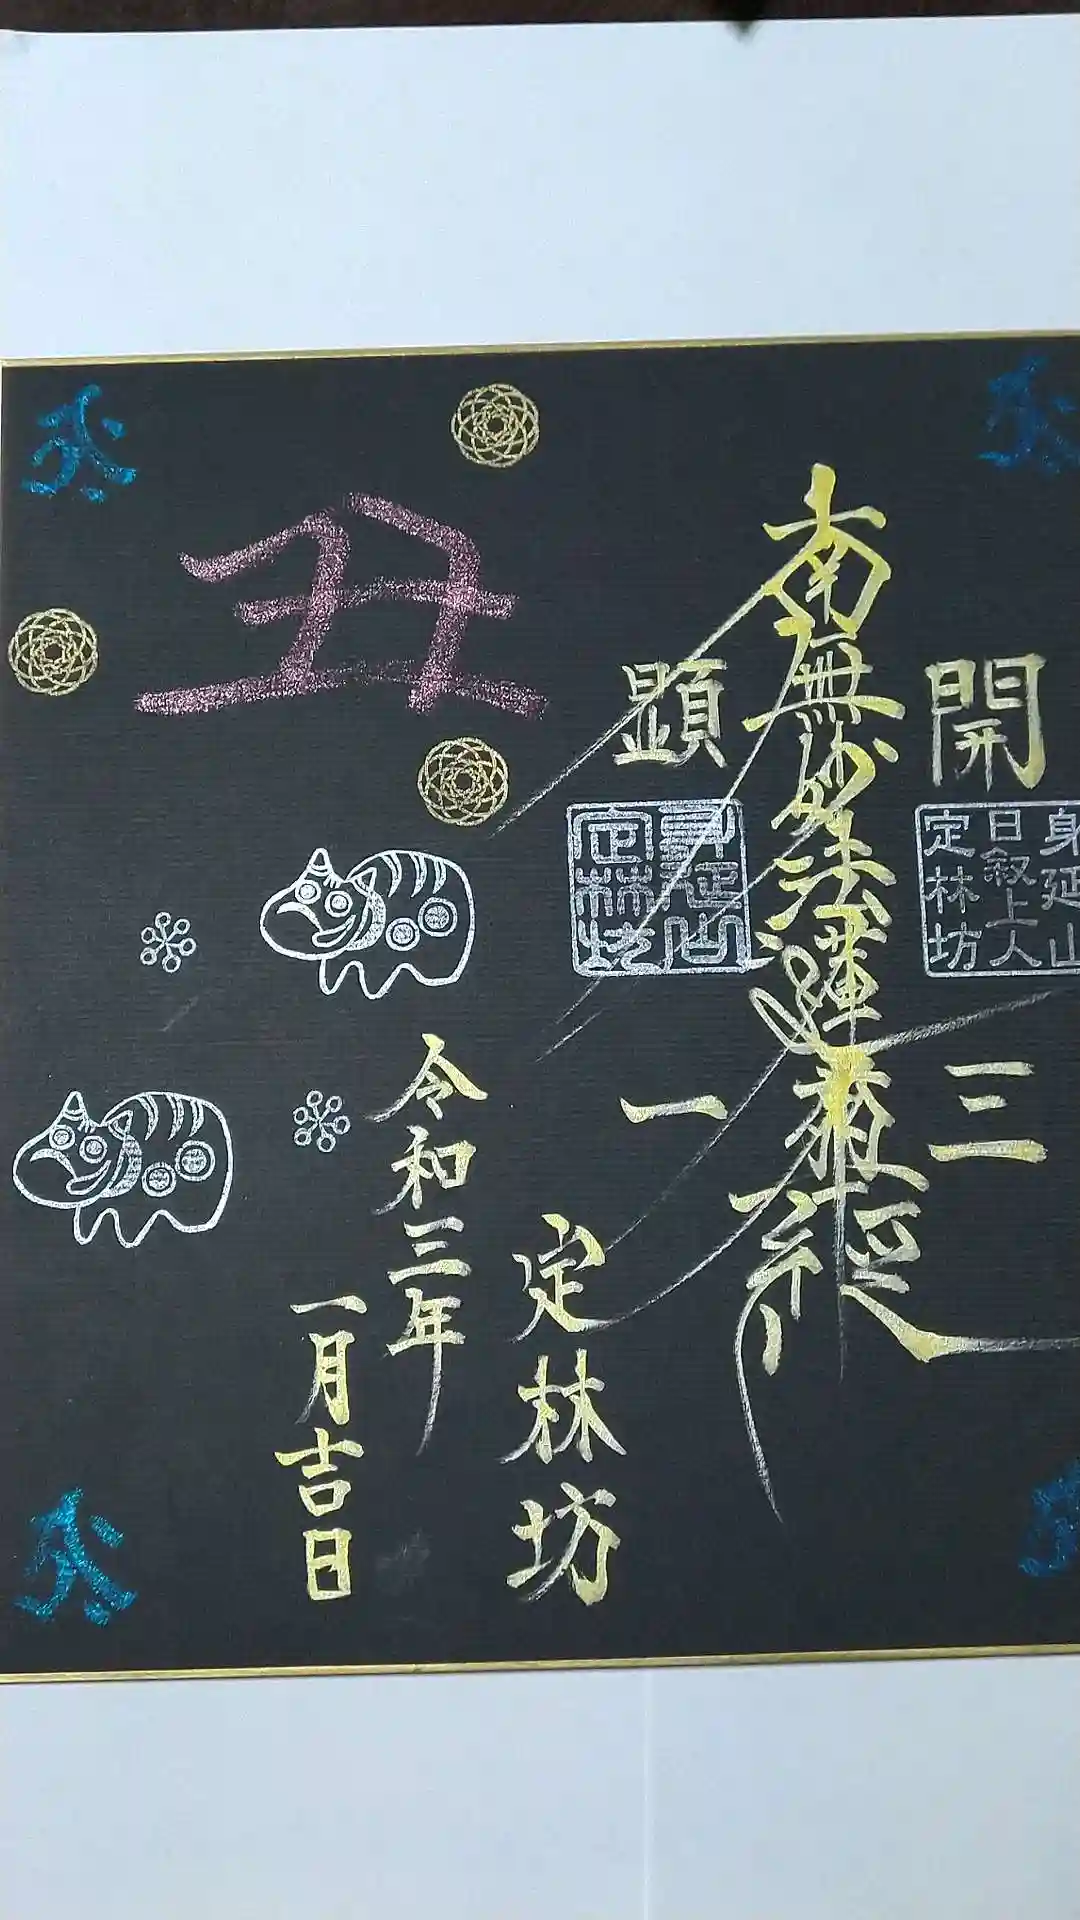 開
三
身延山
日叙上人
定林坊
南無妙法蓮華経
顕
一
身延山
定林坊
定林坊
令和三年
一月吉日
丑